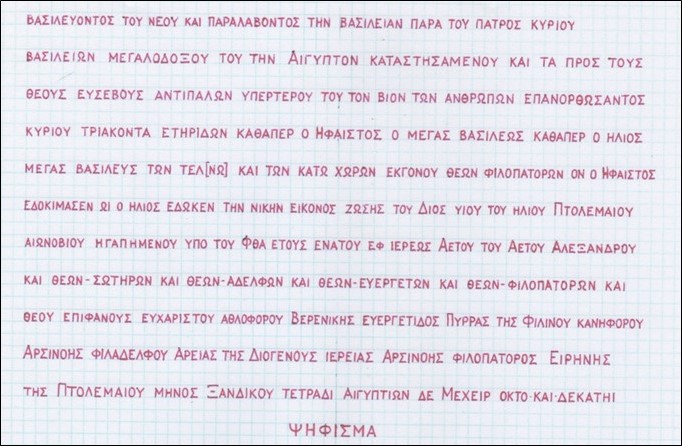 ΒΑΣΙΛΕΥΟΝΤΟΣ ΤΟΥ ΝΕΟΥ ΚΑΙ ΠΑΡΑΛΑΒΟΝΤΟΣ ΤΗΝ ΒΑΣΙΛΕΙΑΝ ΠΑΡΑ ΤΟΥ ΠΑΤΡΟΣ ΚΥΡΙΟΥ
ΒΑΣΙΛΕΙΩΝ ΜΕΓΑΛΟΔΟΞΟΥ ΤΟΥ ΤΗΝ ΑΙΓΥΠΤΟΝ ΚΑΤΑΣΤΗΣΑΜΕΝΟΥ ΚΑΙ ΤΑ ΠΡΟΣ ΤΟΥΣ
ΘΕΟΥΣ ΕΥΣΕΒΟΥΣ ΑΝΤΙΠΑΛΩΝ ΥΠΕΡΤΕΡΟΥ ΤΟΥ ΤΟΝ ΒΙΟΝ ΤΩΝ ΑΝΘΡΩΠΩΝ ΕΠΑΝΟΡΘΩΣΑΝΤΟΣ
ΚΥΡΙΟΥ ΤΡΙΑΚΟΝΤΑ ΕΤΗΡΙΔΩΝ ΚΑΘΑΠΕΡ Ο ΗΦΑΙΣΤΟΣ Ο ΜΕΓΑΣ ΒΑΣΙΛΕΩΣ ΚΑΘΑΠΕΡ Ο ΗΛΙΟΣ
ΜΕΓΑΣ ΒΑΣΙΛΕΥΣ ΤΩΝ ΤΕΛ[ΝΩ] ΚΑΙ ΤΩΝ ΚΑΤΩ ΧΩΡΩΝ ΕΚΓΟΝΟΥ ΘΕΩΝ ΦΙΛΟΠΑΤΟΡΩΝ ΟΝ Ο ΗΦΑΙΣΤΟΣ
ΕΔΟΚΙΜΑΣΕΝ ΩΙ Ο ΗΛΙΟΣ ΕΔΩΚΕΝ ΤΗΝ ΝΙΚΗΝ ΕΙΚΟΝΟΣ ΖΩΣΗΣ ΤΟΥ ΔΙΟΣ ΥΙΟΥ ΤΟΥ ΗΛΙΟΥ ΠΤΟΛΕΜΑΙΟΥ
ΑΙΩΝΟΒΙΟΥ ΗΓΑΠΗΜΕΝΟΥ ΥΠΟ ΤΟΥ ΦΘΑ ΕΤΟΥΣ ΕΝΑΤΟΥ ΕΦ ΙΕΡΕΩΣ ΑΕΤΟΥ ΤΟΥ ΑΕΤΟΥ ΑΛΕΞΑΝΔΡΟΥ
ΚΑΙ ΘΕΩΝ-ΣΩΤΗΡΩΝ ΚΑΙ ΘΕΩΝ-ΑΔΕΛΦΩΝ ΚΑΙ ΘΕΩΝ-ΕΥΕΡΓΕΤΩΝ ΚΑΙ ΘΕΩΝ-ΦΙΛΟΠΑΤΟΡΩΝ ΚΑΙ
ΘΕΟΥ ΕΠΙΦΑΝΟΥΣ ΕΥΧΑΡΙΣΤΟΥ ΑΘΛΟΦΟΡΟΥ ΒΕΡΕΝΙΚΗΣ ΕΥΕΡΓΕΤΙΔΟΣ ΠΥΡΡΑΣ ΤΗΣ ΦΙΛΙΝΟΥ ΚΑΝΗΦΟΡΟΥ
ΑΡΣΙΝΟΗΣ ΦΙΛΑΔΕΛΦΟΥ ΑΡΕΙΑΣ ΤΗΣ ΔΙΟΓΕΝΟΥΣ ΙΕΡΕΙΑΣ ΑΡΣΙΝΟΗΣ ΦΙΛΟΠΑΤΟΡΟΣ ΕΙΡΗΝΗΣ
ΤΗΣ ΠΤΟΛΕΜΑΙΟΥ ΜΗΝΟΣ ΞΑΝΔΙΚΟΥ ΤΕΤΡΑΔΙ ΑΙΓΥΠΤΙΩΝ ΔΕ ΜΕΧΕΙΡ ΟΚΤΟ·ΚΑΙ·ΔΕΚΑΤΗΙ
ΨΗΦΙΣΜΑ